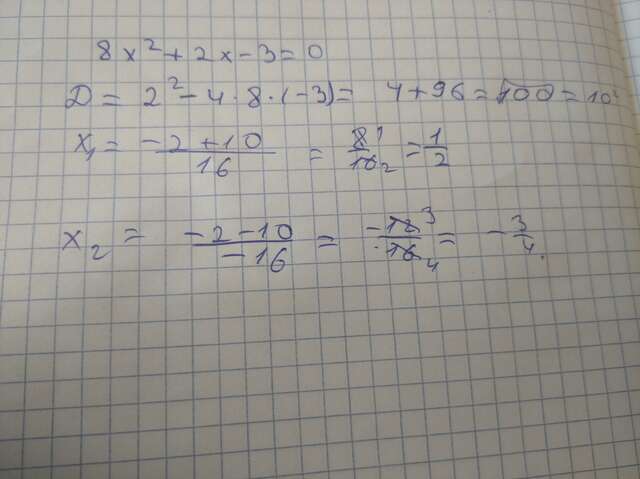 8x² + 2x - 3 = 0
D = 2² - 4 · 8 · (-3) = 4 + 96 = √100 = 10
x₁ = (-2 + 10)/16 = 8¹/16₂ = 1/2
x₂ = (-2 - 10)/(-16) = -12³/16₄ = -3/4.